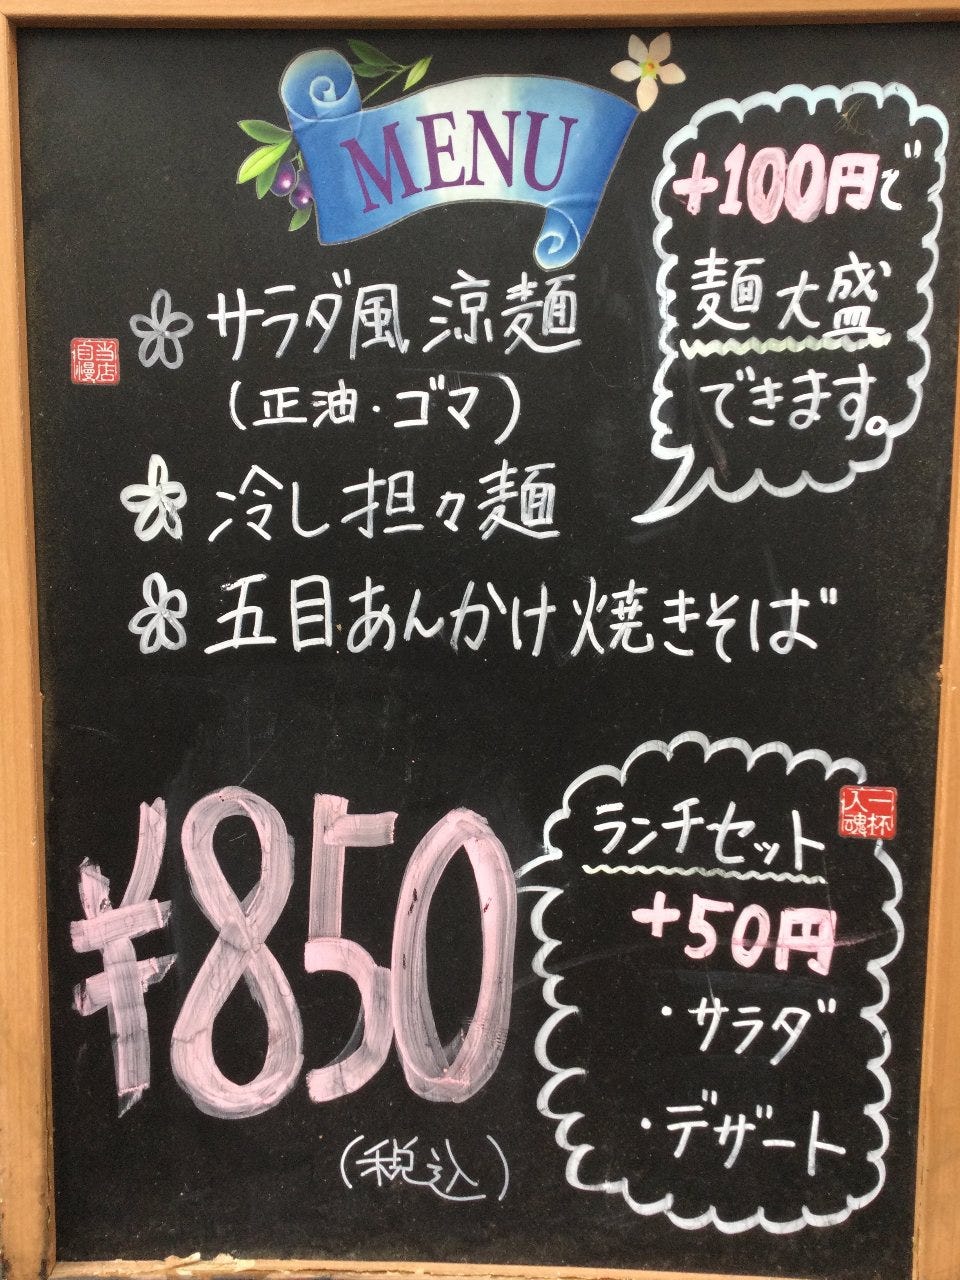 MENU
+100円で
麺大盛
できます。
サラダ風涼麺
(正油・ゴマ)
当店
自慢
冷し担々麺
五目あんかけ焼きそば
¥850
(税込)
ランチセット
一杯
入魂
+50円
・サラダ
・デザート